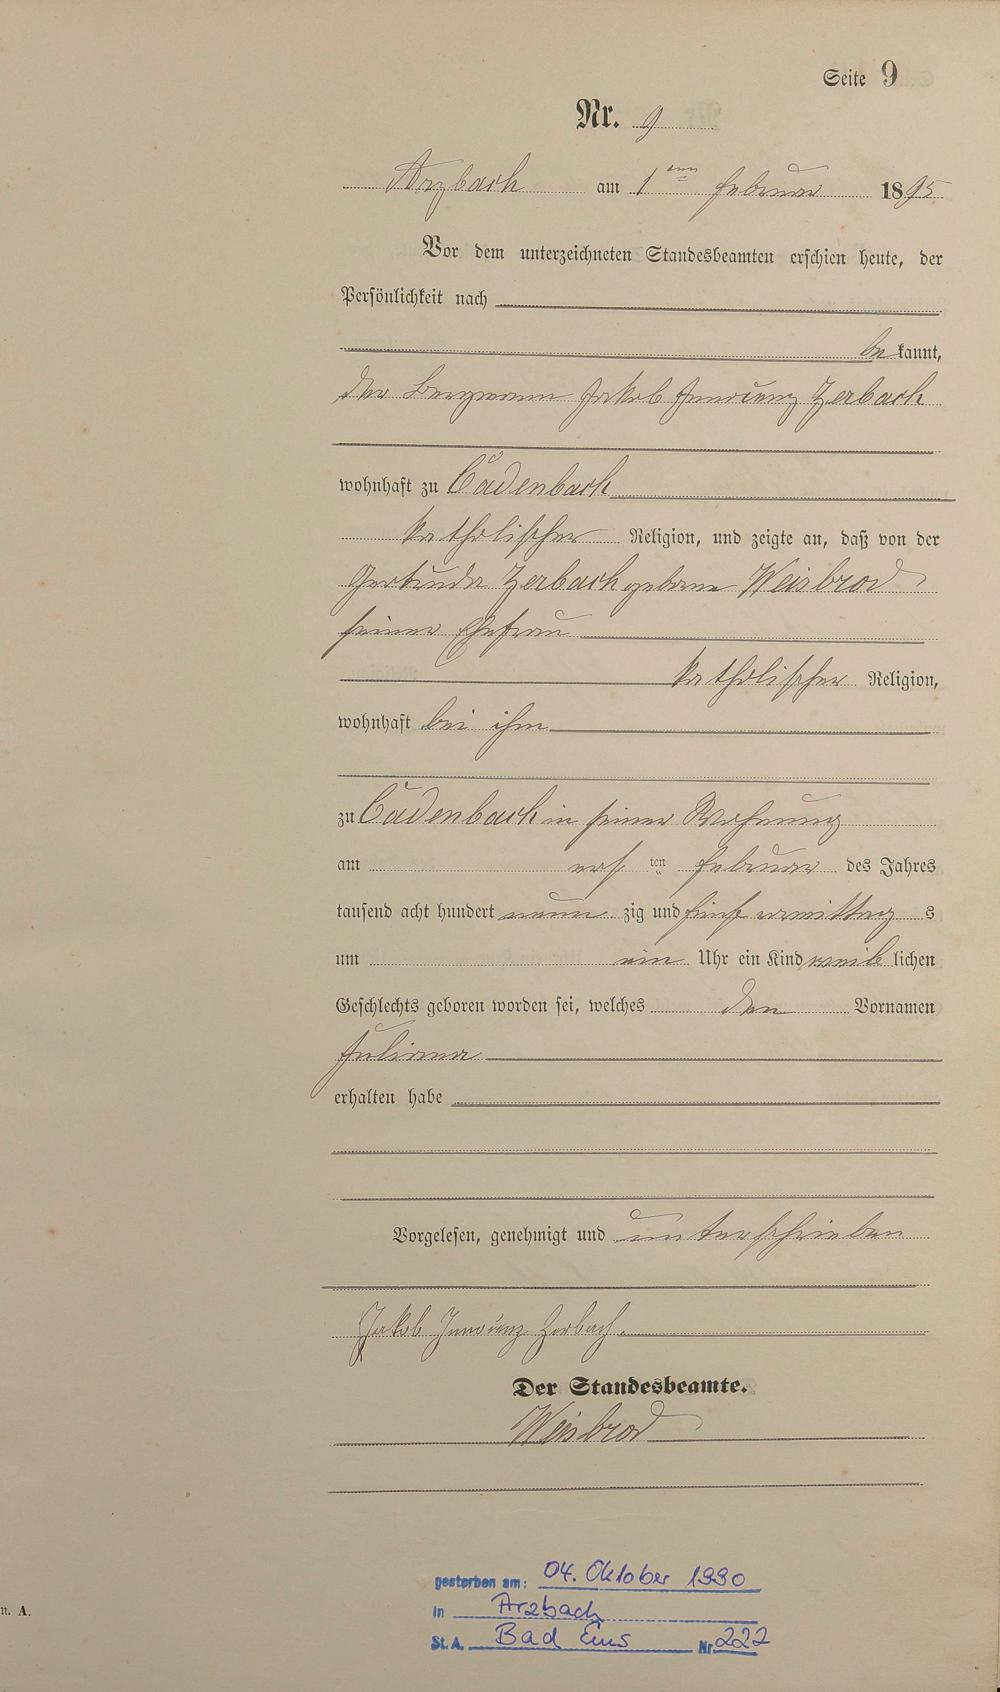 Seite 9
Nr. 9
Arzbach am 1ten Februar 1895
Vor dem unterzeichneten Standesbeamten erschien heute, der
Persönlichkeit nach
bekannt,
der Bergmann Jakob Innocenz Zerbach
wohnhaft zu Cadenbach
katholischer Religion, und zeigte an, daß von der
Gertruda Zerbach geborne Weisbrod
seiner Ehefrau
katholischer Religion,
wohnhaft bei ihm
zu Cadenbach in seiner Wohnung
am ersten Februar des Jahres
tausend acht hundert neunzig und fünf vormittags
um ein Uhr ein Kind weiblichen
Geschlechts geboren worden sei, welches den Vornamen
Juliana
erhalten habe
Vorgelesen, genehmigt und unterschrieben
Jakob Innocenz Zerbach.
Der Standesbeamte.
Weisbrod
gestorben am: 04. Oktober 1990
in Arzbach
St.A. Bad Ems Nr 222
n. A.